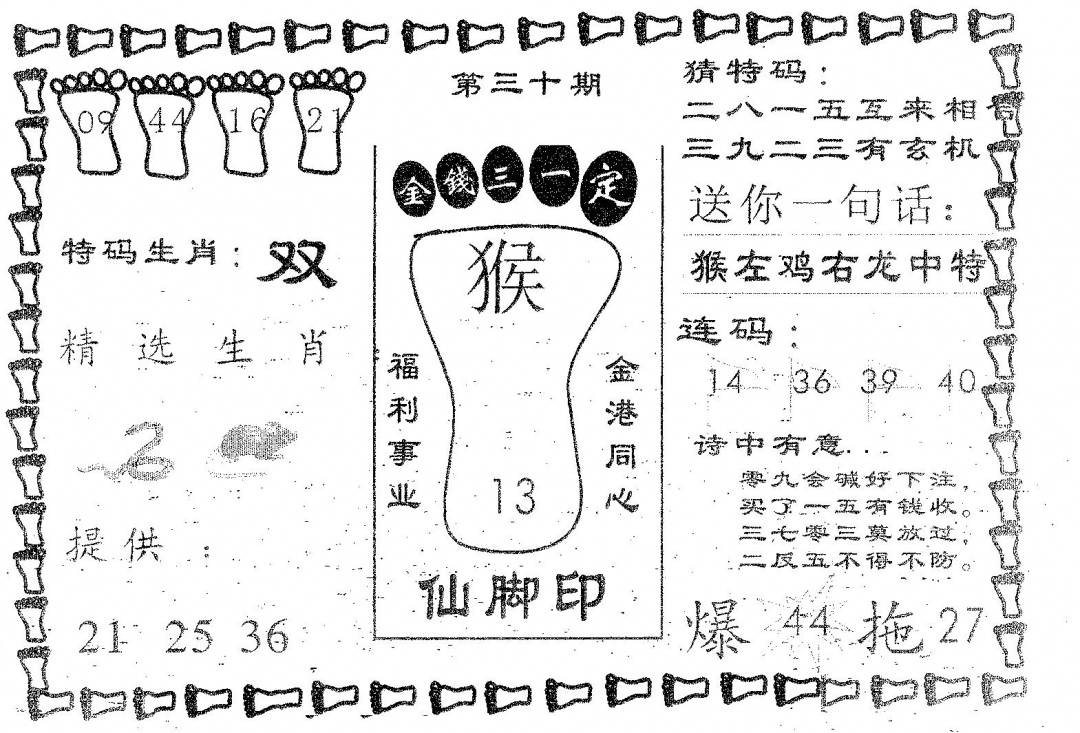 第三十期
09 44 16 21
特码生肖：双
精选生肖
提供：
21 25 36
金錢三一定
猴
13
福利事业
金港同心
仙脚印
猜特码：
二八一五互来相
三九二三有玄机
送你一句话：
猴左鸡右龙中特
连码：
14 36 39 40
诗中有意...
零九会碱好下注，
买了一五有钱收。
三七零三莫放过，
二反五不得不防。
爆 44 拖 27